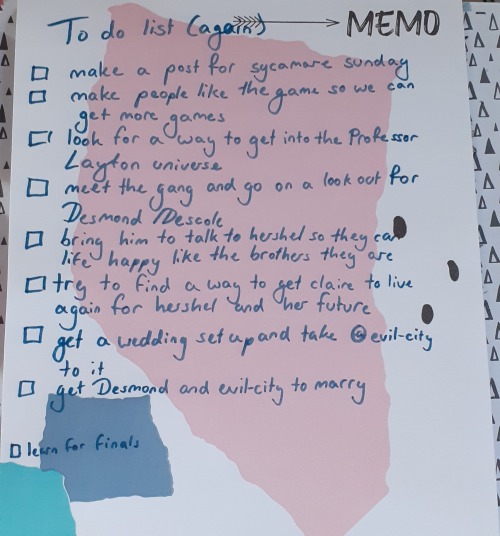 To do list (again) MEMO
□ make a post for sycamore sunday
□ make people like the game so we can
get more games
□ look for a way to get into the Professor
Layton universe
□ meet the gang and go on a look out for
Desmond/Descole
□ bring him to talk to hershel so they can
life happy like the brothers they are
□ try to find a way to get claire to live
again for hershel and her future
□ get a wedding set up and take @evil-city
to it
□ get Desmond and evil-city to marry
□ learn for finals